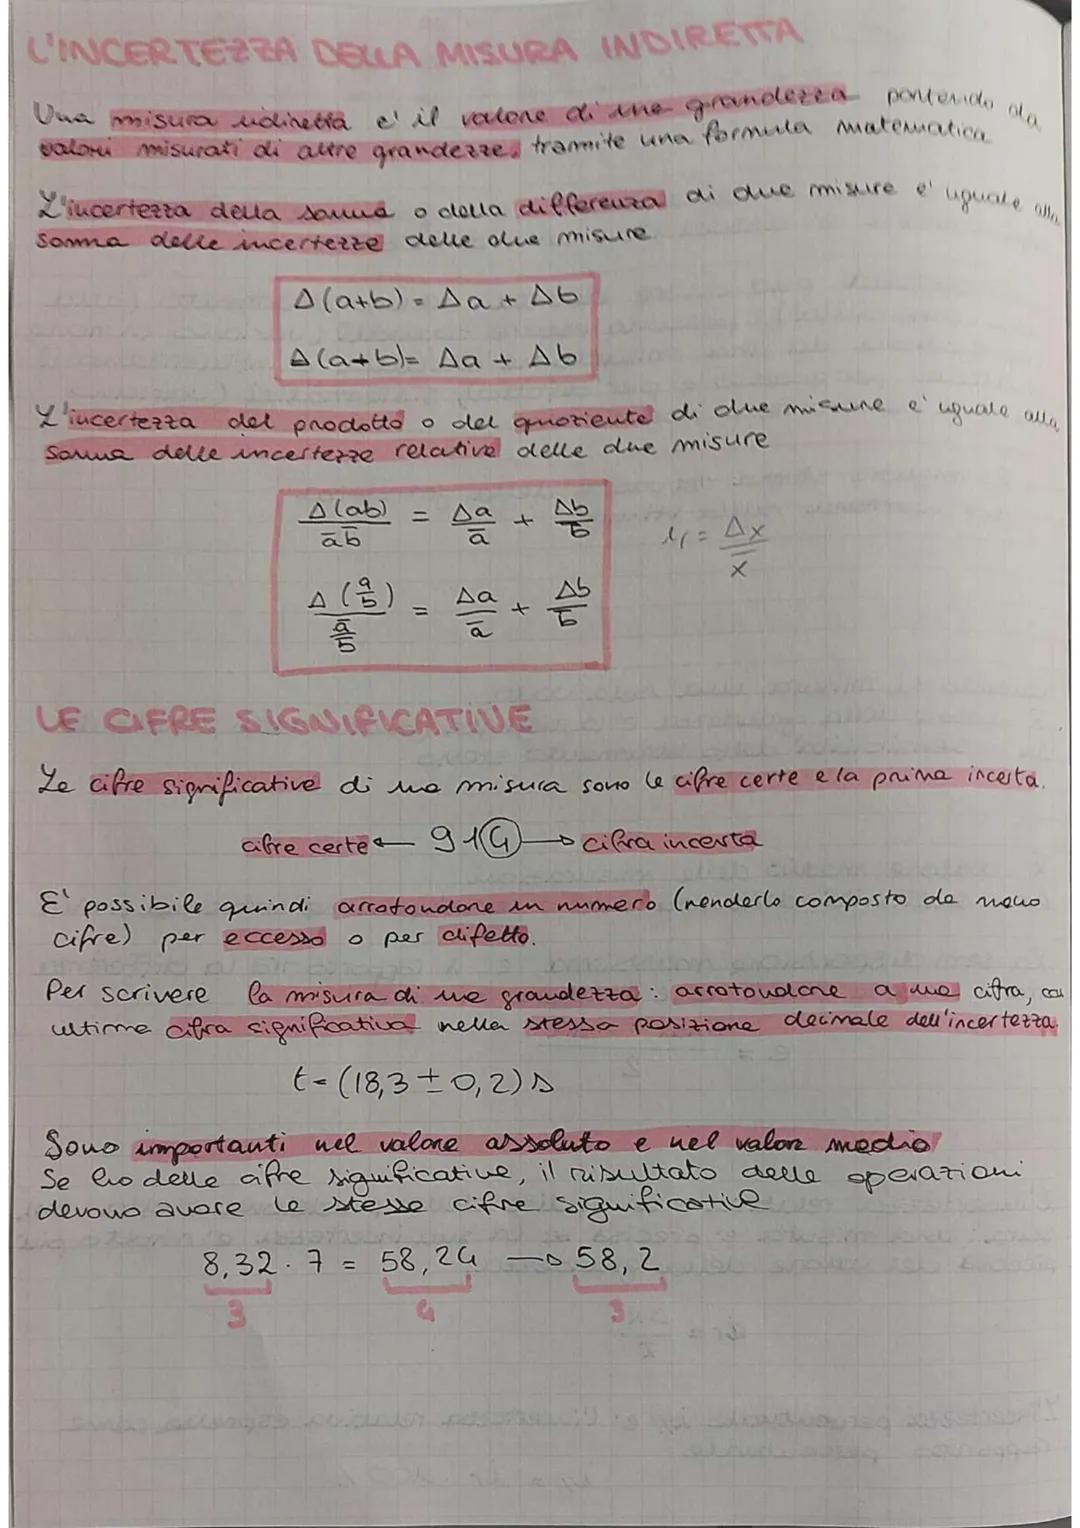 L'INCERTEZZA DELLA MISURA INDIRETTA
Una misura indiretta e' il valore di una grandezza partendo da
valori misurati di altre grandezze, tramite una formula matematica
L'incertezza della somma o della differenza di due misure e' uguale alla
somma delle incertezze delle due misure
Δ(a+b) = Δa + Δb
Δ(a+b) = Δa + Δb
L'incertezza del prodotto o del quoziente di due misure e' uguale alla
somma delle incertezze relative delle due misure
Δ(ab)/āb̄ = Δa/ā + Δb/b̄
ir = Δx/x̄
Δ(a/b)/(ā/b̄) = Δa/ā + Δb/b̄
LE CIFRE SIGNIFICATIVE
Le cifre significative di una misura sono le cifre certe e la prima incerta.
cifre certe ← 914 → cifra incerta
E' possibile quindi arrotondare un numero (renderlo composto da meno
cifre) per eccesso o per difetto.
Per scrivere la misura di una grandezza: arrotondare a una cifra, con
ultima cifra significativa nella stessa posizione decimale dell'incertezza.
t = (18,3 ± 0,2) s
Sono importanti nel valore assoluto e nel valore medio
Se ho delle cifre significative, il risultato delle operazioni
devono avere le stesse cifre significative
8,32 · 7 = 58,24 → 58,2
3 4 3